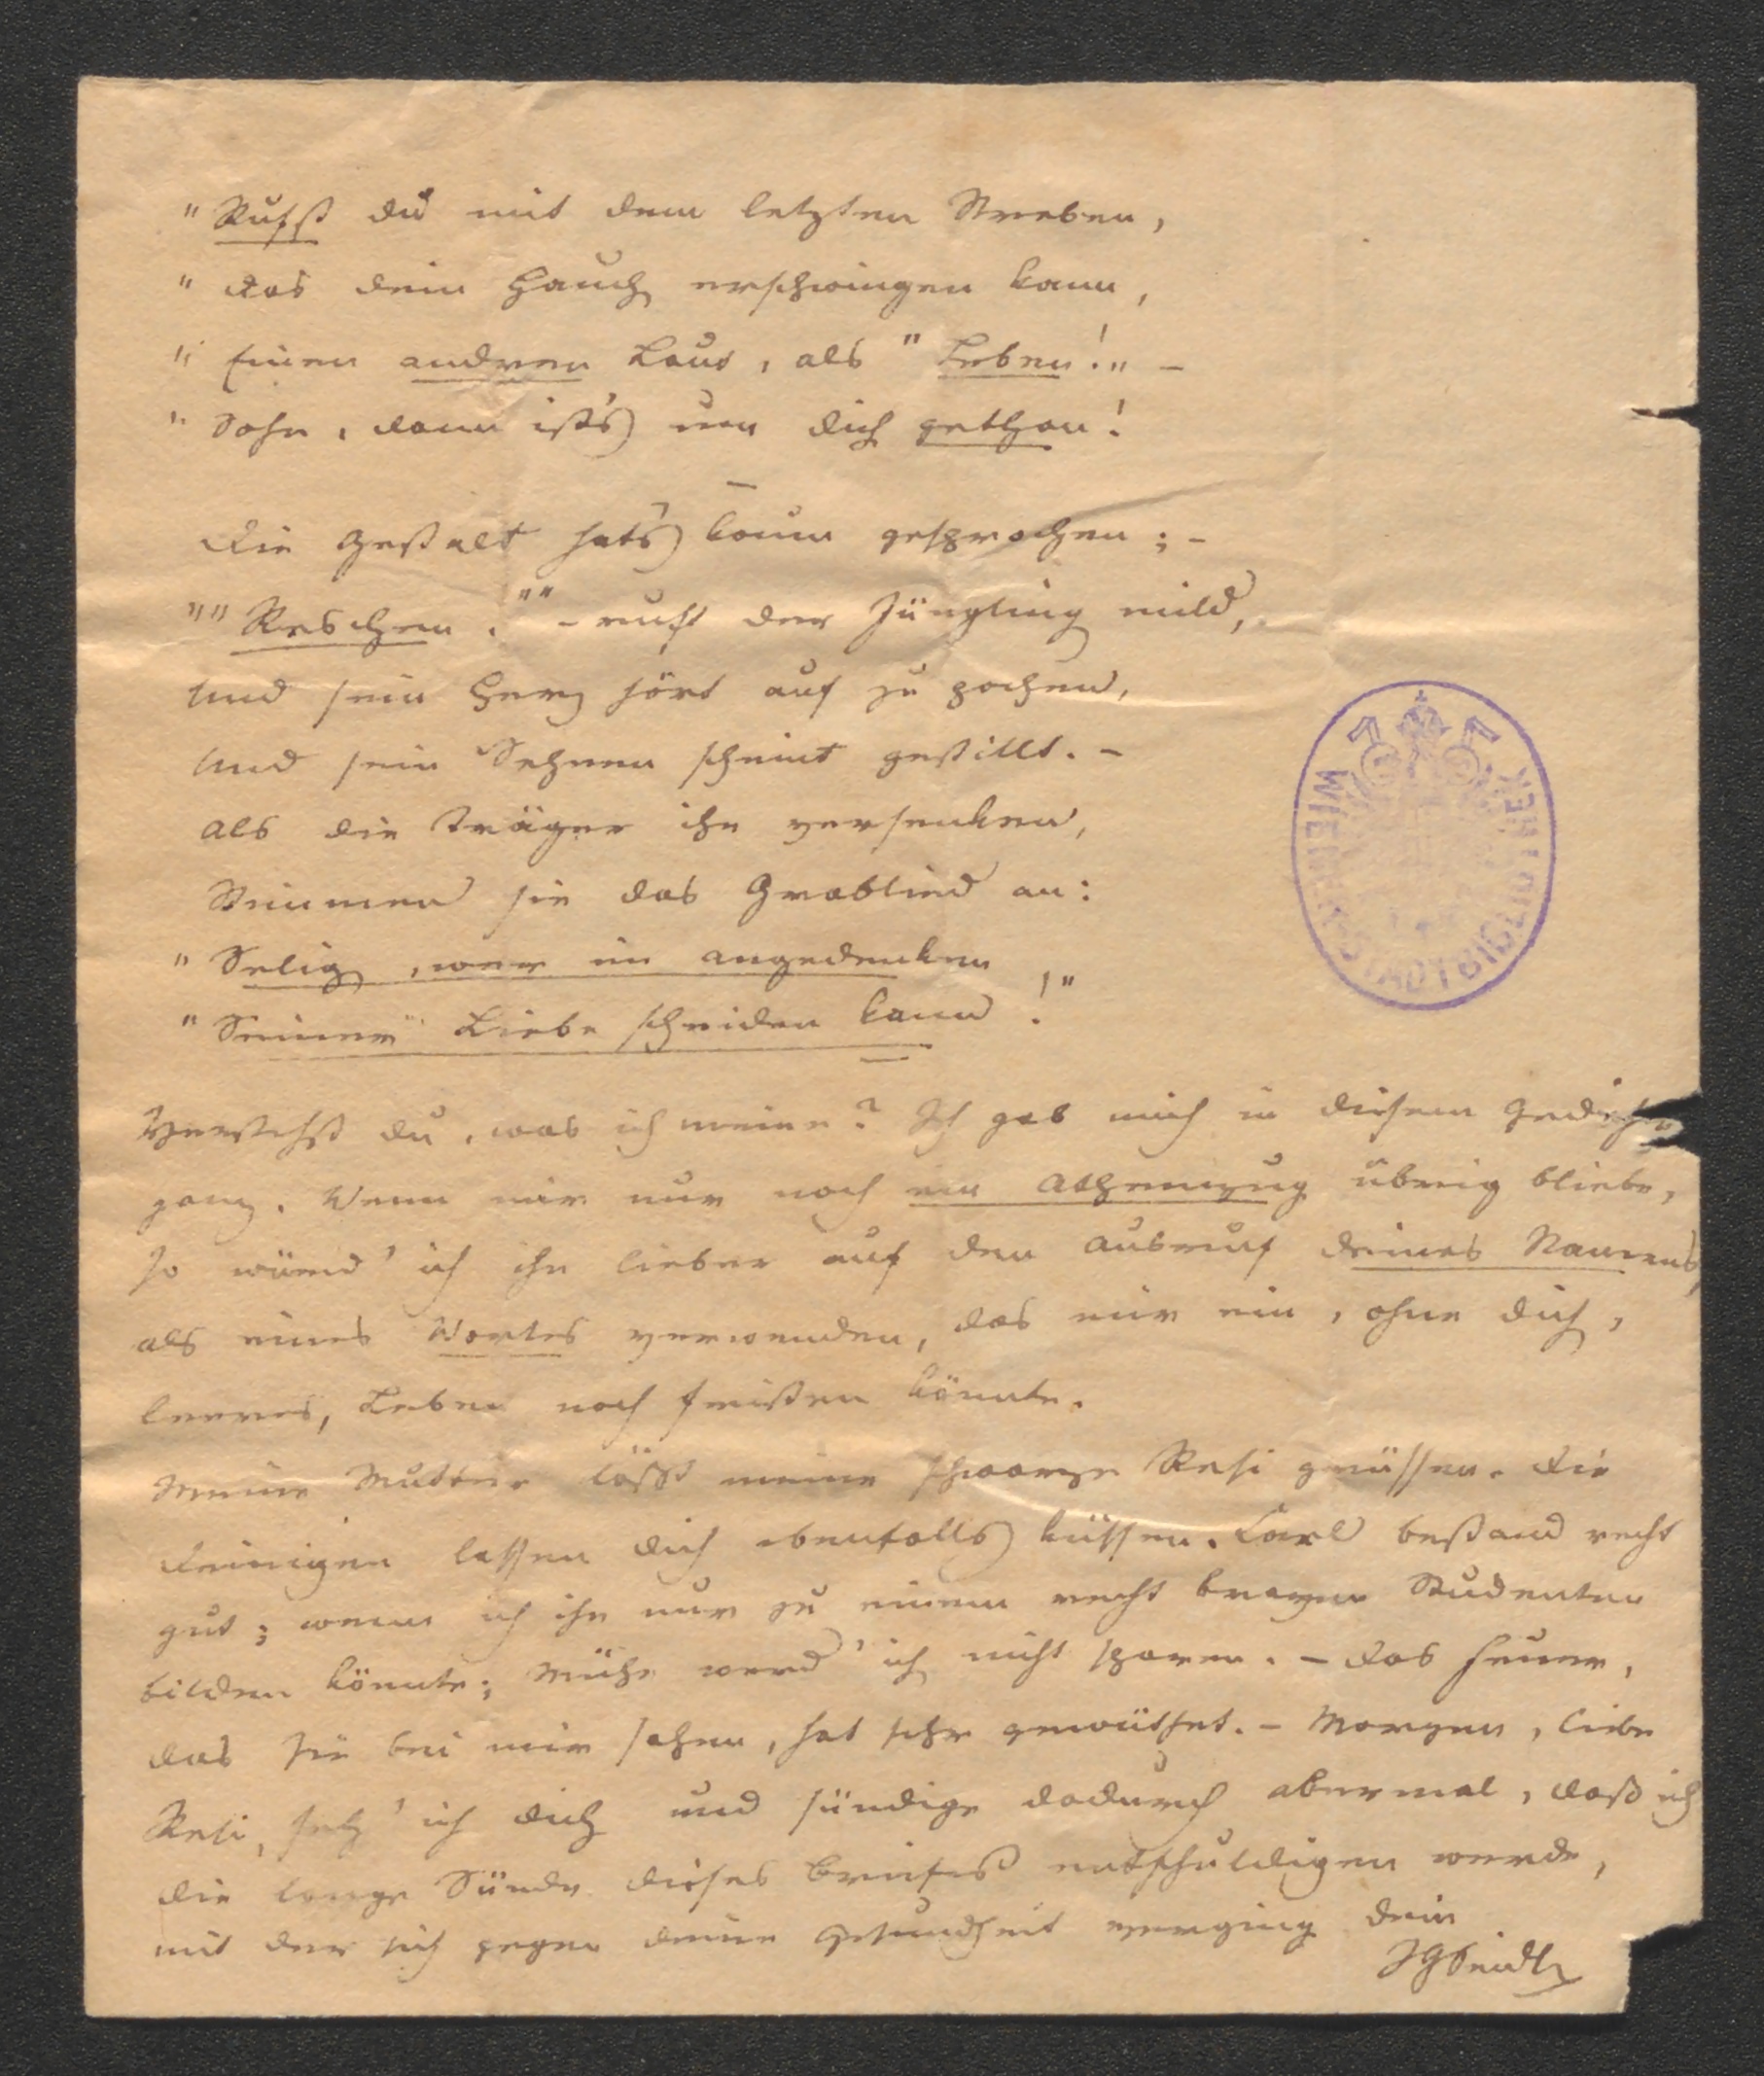 "Rufst du mit dem letzten Streben,
"Das dein Hauch erschwingen kann,
"Einen andren Laut, als "Leben!" –
"Sohn, dann ists um dich gethan!
–
Die Gestalt hat's kaum gesprochen; –
""Reschen!"" – ruft der Jüngling mild,
Und sein Herz hört auf zu pochen,
Und sein Sehnen scheint gestillt. –
Als die Träger ihn versenken,
Stimmen sie das Grablied an:
"Selig, wer im Angedenken
"Seiner Liebe scheiden kann!"
Verstehst du, was ich meine? Ich gab mich in diesem Gedichte
ganz. Wenn mir nur noch ein Athemzug übrig bliebe,
so würd' ich ihn lieber auf den Ausruf deines Namens,
als eines Wortes verwenden, das mir ein, ohne dich,
leeres, Leben noch fristen könnte.
Meine Mutter läßt meine schwarze Resi grüssen. Die
Deinigen lassen dich ebenfalls küssen. Carl bestand recht
gut; wenn ich ihn nur zu einem recht braven Studenten
bilden könnte; Mühe werd' ich nicht sparen. – Das Feuer,
das Sie bei mir sahen, hat sehr gewüthet. – Morgen, liebe
Resi, seh' ich dich und sündige dadurch abermal, daß ich
die lange Sünde dieses Briefes entschuldigen werde,
mit der sich gegen deine Gesundheit verging dein
JGSeidl
WIENER STADTBIBLIOTHEK